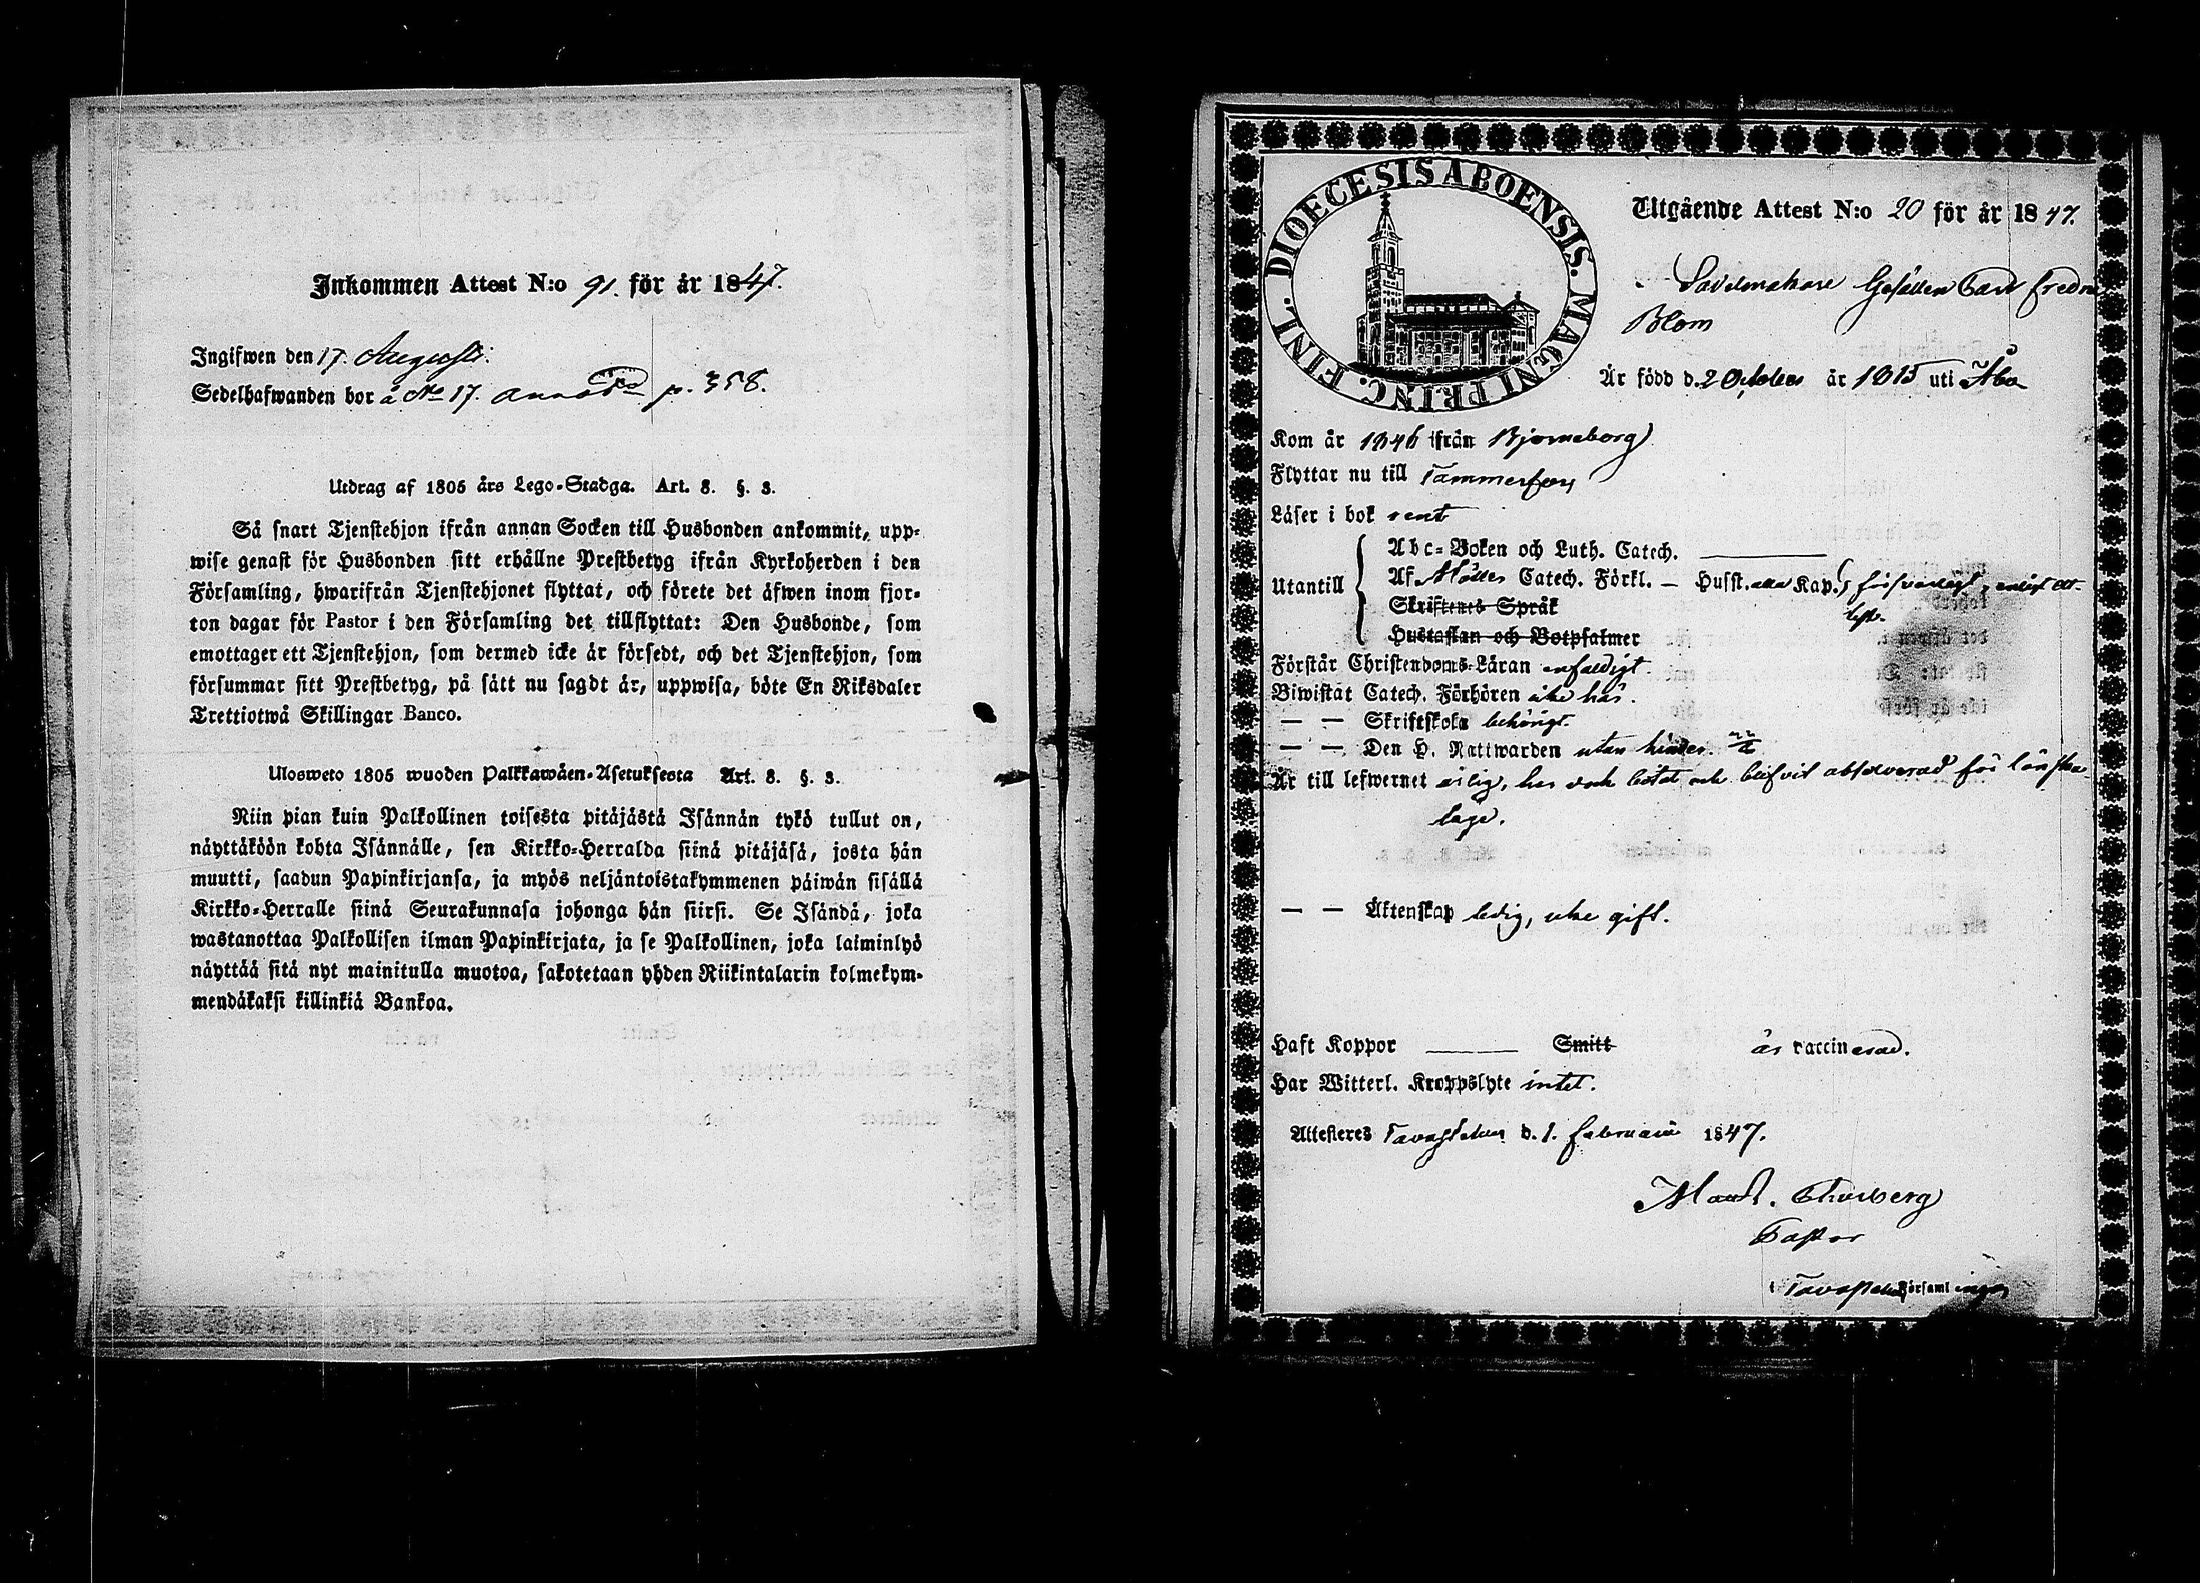 Inkommen Attest N:o 91. för år 1847.
Ingifwen den 17. Augusti.
Sedelhafwanden bor å No 17. p. 358.
Utdrag af 1805 års Lego-Stadga. Art. 8. §. 3.
Så snart Tjenstehjon ifrån annan Socken till Husbonden ankommit, upp-
wise genast för Husbonden sitt erhållne Prestbetyg ifrån Kyrkoherden i den
Församling, hwarifrån Tjenstehjonet flyttat, och förete det äfwen inom fjor-
ton dagar för Pastor i den Församling det tillflyttat: Den Husbonde, som
emottager ett Tjenstehjon, som dermed icke är försedt, och det Tjenstehjon, som
försummar sitt Prestbetyg, på sätt nu sagdt är, uppwisa, böte En Riksdaler
Trettiotwå Skillingar Banco.
Ulosweto 1805 wuoden Palkkawäen-Asetuksesta Art. 8. §. 3.
Niin pian kuin Palkollinen toisesta pitäjästä Isännän tykö tullut on,
näyttäköön kohta Isännälle, sen Kirkko-Herralda siinä pitäjäsä, josta hän
muutti, saadun Papinkirjansa, ja myös neljäntoistakymmenen päiwän sisällä
Kirkko-Herralle siinä Seurakunnasa johonga hän siirsi. Se Isändä, joka
wastanottaa Palkollisen ilman Papinkirjata, ja se Palkollinen, joka laiminlyö
näyttää sitä nyt mainitulla muotoa, sakotetaan yhden Riikintalarin kolmekym-
mendäkaksi killinkiä Bankoa.
DIOECESIS ABOENSIS. MAGNI PRINC. FINL.
Utgående Attest N:o 20 för år 1847.
Sadelmakare Gesällen Carl Fredric
Blom
Är född d. 2 October år 1815 uti Åbo
Kom år 1846 ifrån Björneborg
Flyttar nu till Tammerfors
Läser i bok rent
Abc-Boken och Luth. Catech.
Utantill Af Möllers Catech. Förkl. — Husst. alla Kap. försvarligt, enligt att-
Skriftenes Språkest.
Hustaflan och Botpsalmer
Förstår Christendoms-Läran enfaldigt.
Biwistat Catech. Förhören icke här.
— — Skriftskola behörigt.
— — Den H. Nattwarden utan hinder.
Är till lefwernet ärlig, har dock bötat och blifvit absolverad för lönska-
läge.
— — Äktenskap ledig, icke gift.
Haft Koppor ——— Smitt är vaccinerad.
Har Witterl. Kroppslyte intet.
Attesteres Tavastehus d. 1. Februarii 1847.
Pastor
i Tavastehus Församlingar